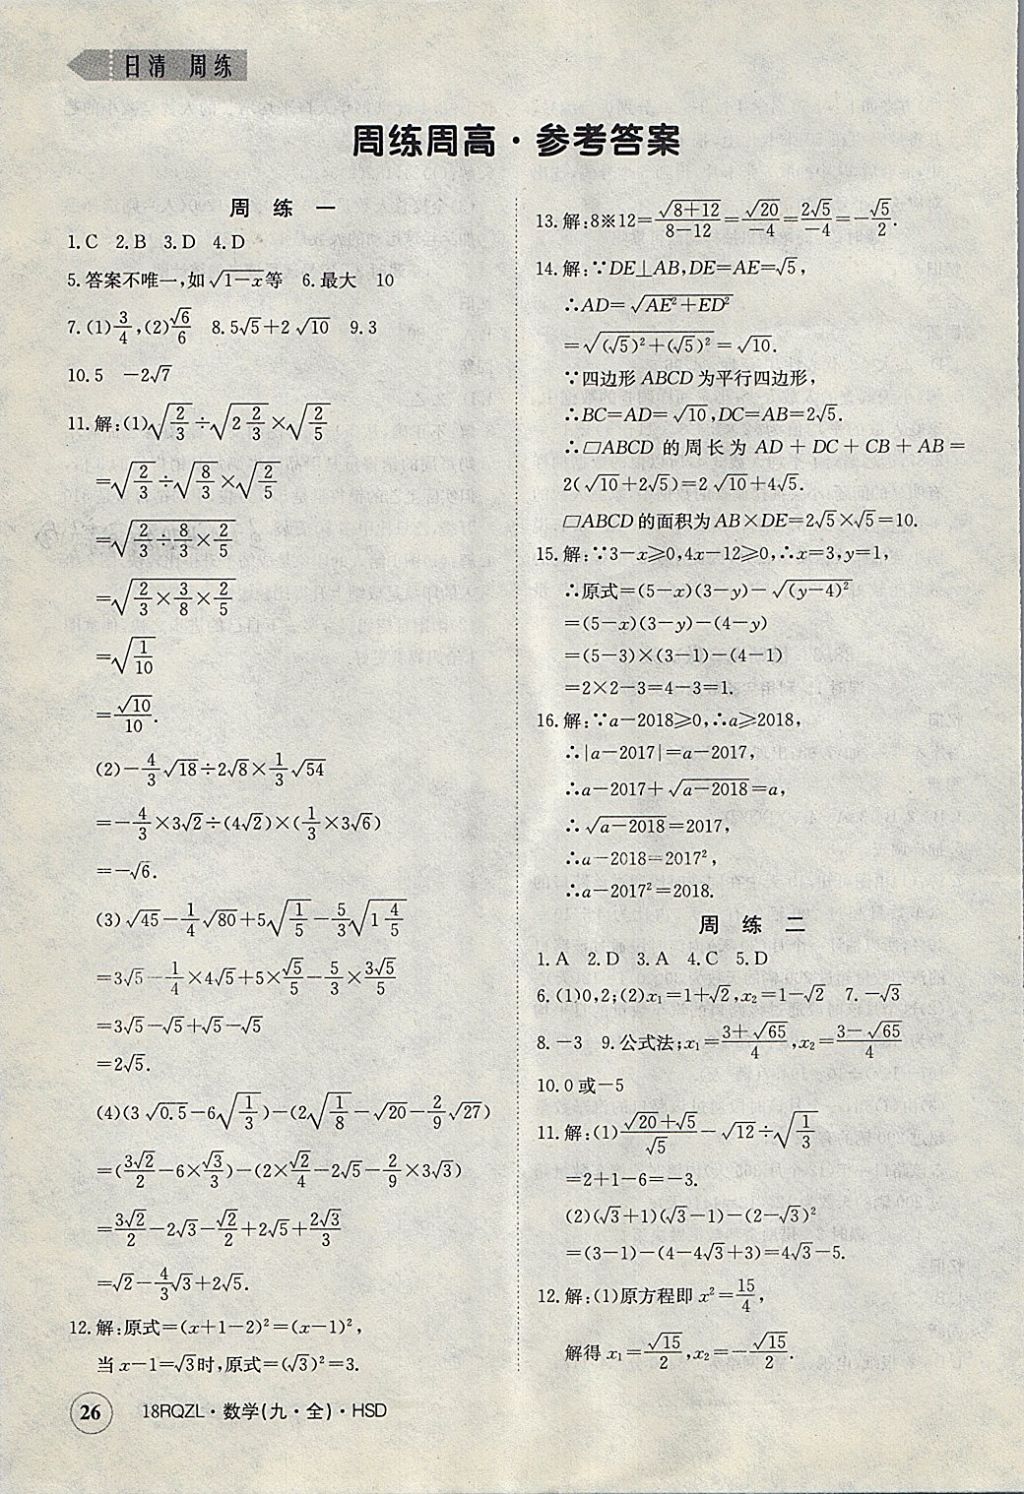 日清 周练
周练周高·参考答案
周 练 一
1.C 2.B 3.D 4.D
5.答案不唯一,如√(1-x)等 6.最大 10
7.(1)3/4,(2)√6/6 8.5√5+2√10 9.3
10.5 -2√7
11.解:(1)√(2/3)÷√(2 2/3)×√(2/5)
=√(2/3)÷√(8/3)×√(2/5)
=√(2/3÷8/3×2/5)
=√(2/3×3/8×2/5)
=√(1/10)
=√10/10.
(2)-4/3√18÷2√8×1/3√54
=-4/3×3√2÷(4√2)×(1/3×3√6)
=-√6.
(3)√45-1/4√80+5√(1/5)-5/3√(1 4/5)
=3√5-1/4×4√5+5×√5/5-5/3×3√5/5
=3√5-√5+√5-√5
=2√5.
(4)(3√0.5-6√(1/3))-(2√(1/8)-√20-2/9√27)
=(3√2/2-6×√3/3)-(2×√2/4-2√5-2/9×3√3)
=3√2/2-2√3-√2/2+2√5+2√3/3
=√2-4/3√3+2√5.
12.解:原式=(x+1-2)²=(x-1)²,
当x-1=√3时,原式=(√3)²=3.
13.解:8※12=√(8+12)/(8-12)=√20/-4=2√5/-4=-√5/2.
14.解:∵DE⊥AB,DE=AE=√5,
∴AD=√(AE²+ED²)
=√((√5)²+(√5)²)=√10.
∵四边形ABCD为平行四边形,
∴BC=AD=√10,DC=AB=2√5.
∴▱ABCD的周长为AD+DC+CB+AB=
2(√10+2√5)=2√10+4√5.
▱ABCD的面积为AB×DE=2√5×√5=10.
15.解:∵3-x≥0,4x-12≥0,∴x=3,y=1,
∴原式=(5-x)(3-y)-√((y-4)²)
=(5-x)(3-y)-(4-y)
=(5-3)×(3-1)-(4-1)
=2×2-3=4-3=1.
16.解:∵a-2018≥0,∴a≥2018,
∴|a-2017|=a-2017,
∴a-2017+√(a-2018)=a,
∴√(a-2018)=2017,
∴a-2018=2017²,
∴a-2017²=2018.
周 练 二
1.A 2.D 3.A 4.C 5.D
6.(1)0,2;(2)x₁=1+√2,x₂=1-√2 7.-√3
8.-3 9.公式法;x₁=(3+√65)/4,x₂=(3-√65)/4
10.0或-5
11.解:(1)(√20+√5)/√5-√12÷√(1/3)
=2+1-6=-3.
(2)(√3+1)(√3-1)-(2-√3)²
=(3-1)-(4-4√3+3)=4√3-5.
12.解:(1)原方程即x²=15/4,
解得x₁=√15/2,x₂=-√15/2.
26 18RQZL·数学(九·全)·HSD